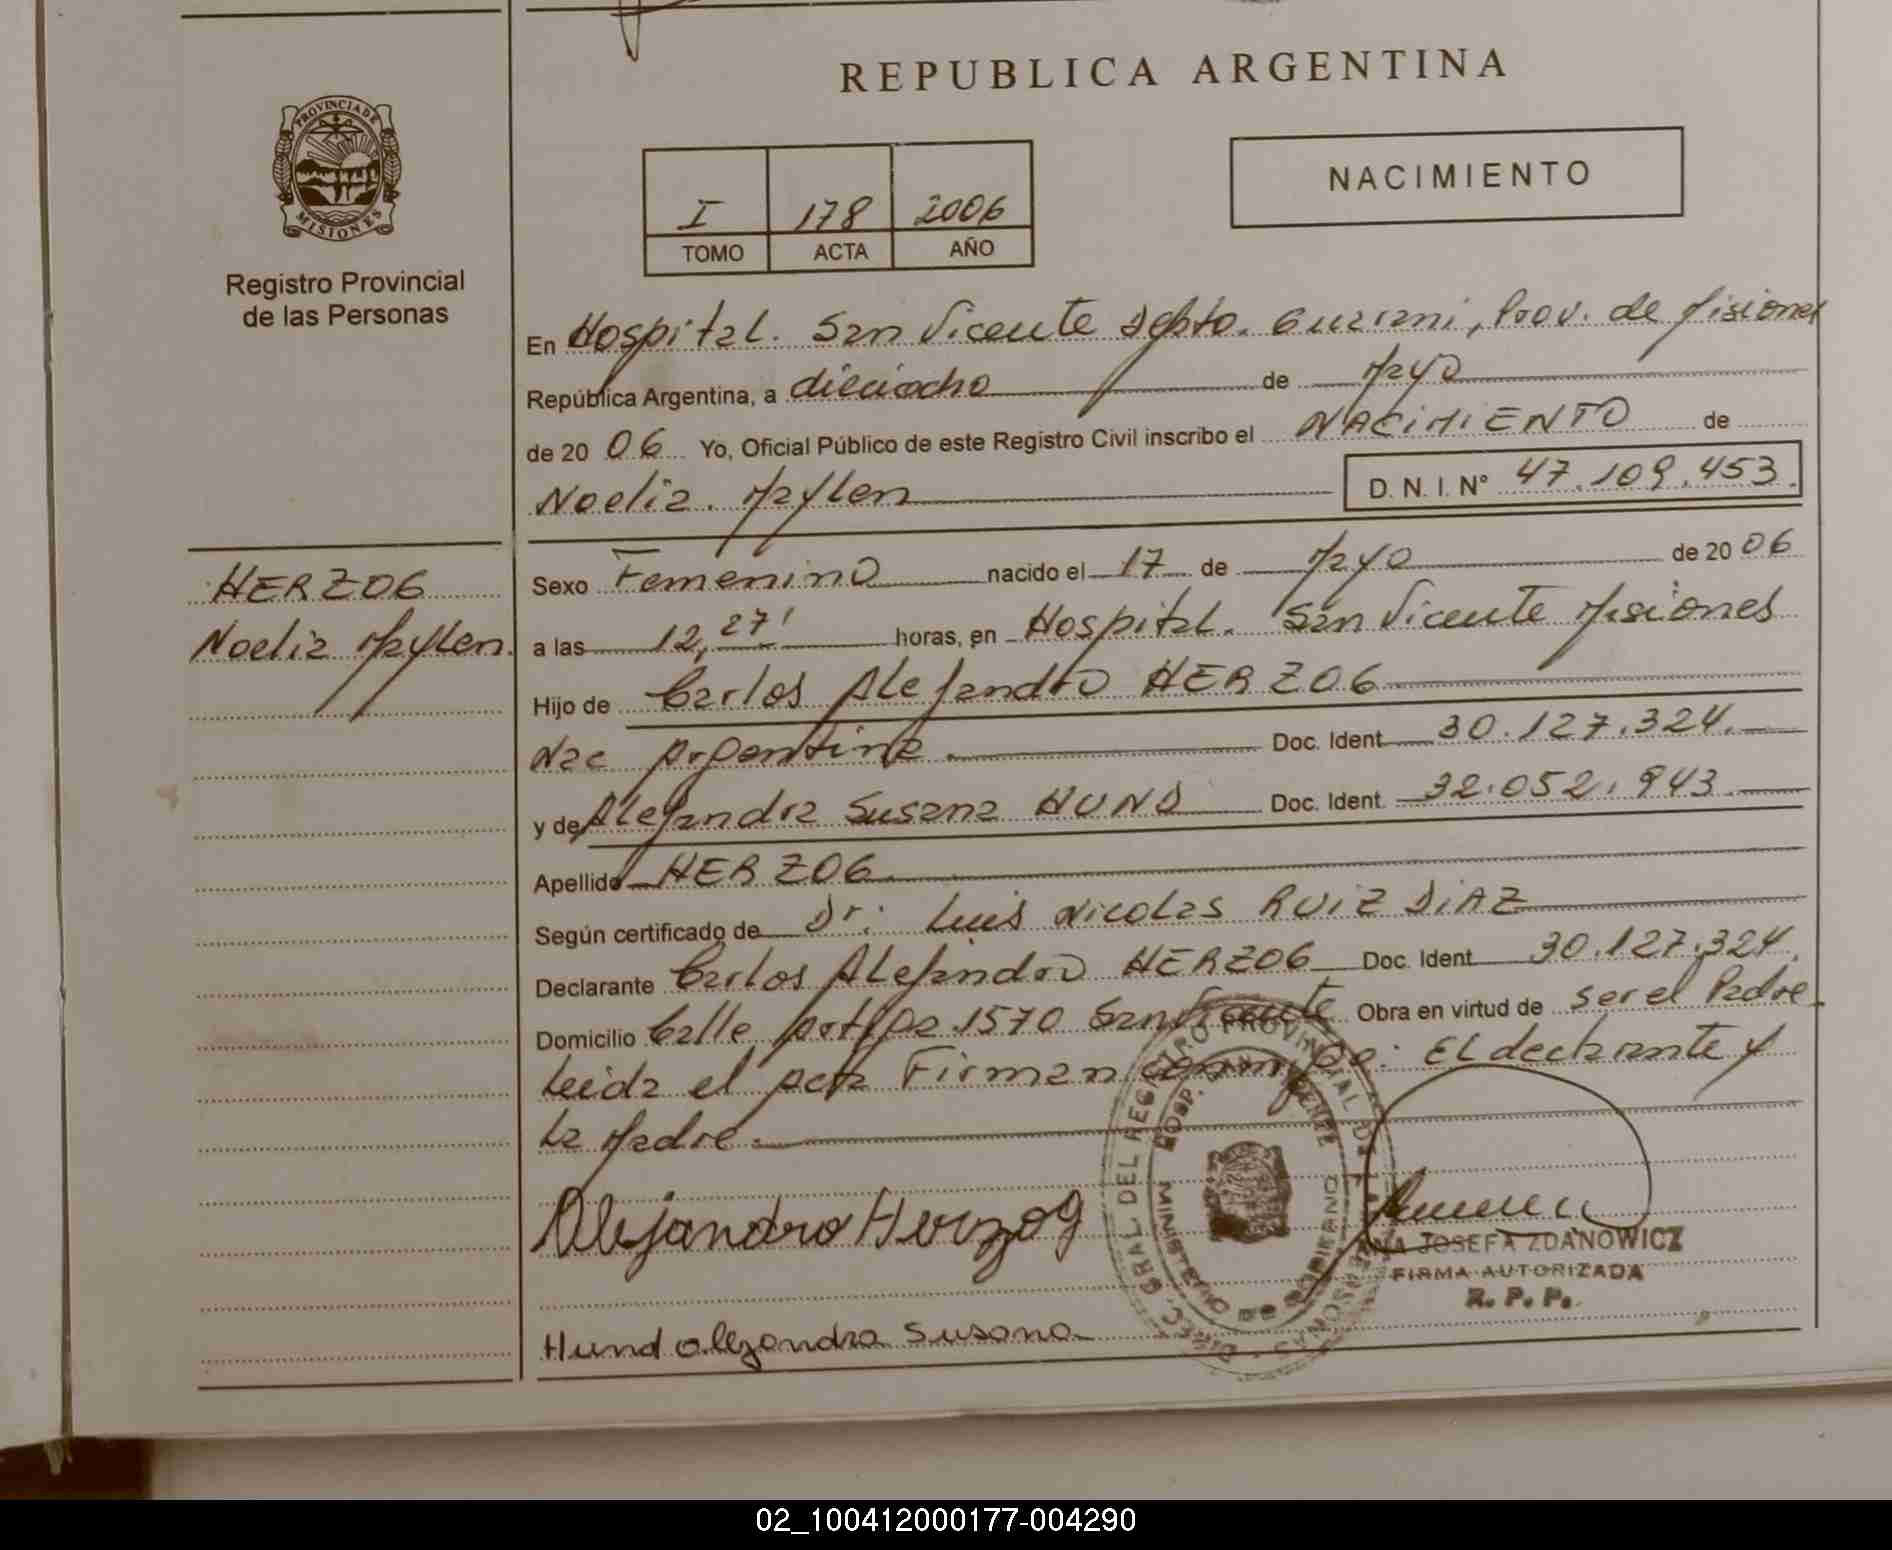 REPUBLICA ARGENTINA
PROVINCIA DE
MISIONES
Registro Provincial
de las Personas
I 178 2006
TOMO ACTA AÑO
NACIMIENTO
En Hospital. San Vicente Dpto. Guarani, Prov. de Misiones
República Argentina, a dieciocho de Mayo
de 20 06 Yo, Oficial Público de este Registro Civil inscribo el NACIMIENTO de
Noelia Maylen D. N. I. N° 47.109.453.
HERZOG
Noelia Maylen.
Sexo Femenino nacido el 17 de Mayo de 20 06
a las 12,27' horas, en Hospital. San Vicente Misiones
Hijo de Carlos Alejandro HERZOG
Nac Argentina Doc. Ident 30.127.324.
y de Alejandra Susana HUND Doc. Ident. 32.052.943.
Apellido HERZOG.
Según certificado de Dr: Luis Nicolas RUIZ DIAZ
Declarante Carlos Alejandro HERZOG Doc. Ident 30.127.324.
Domicilio Calle 1570 San Vicente Obra en virtud de ser el Padre.
Leida el acta Firman conmigo: El declarante y
La Madre.
Alejandro Herzog
Hund alejandra Susana
DIREC. GRAL DEL REGISTRO PROVINCIAL DE LAS PERSONAS
HOSP. SAN VICENTE
MINISTERIO DE GOBIERNO
JOSEFA ZDANOWICZ
FIRMA AUTORIZADA
R. P. P.
02_100412000177-004290